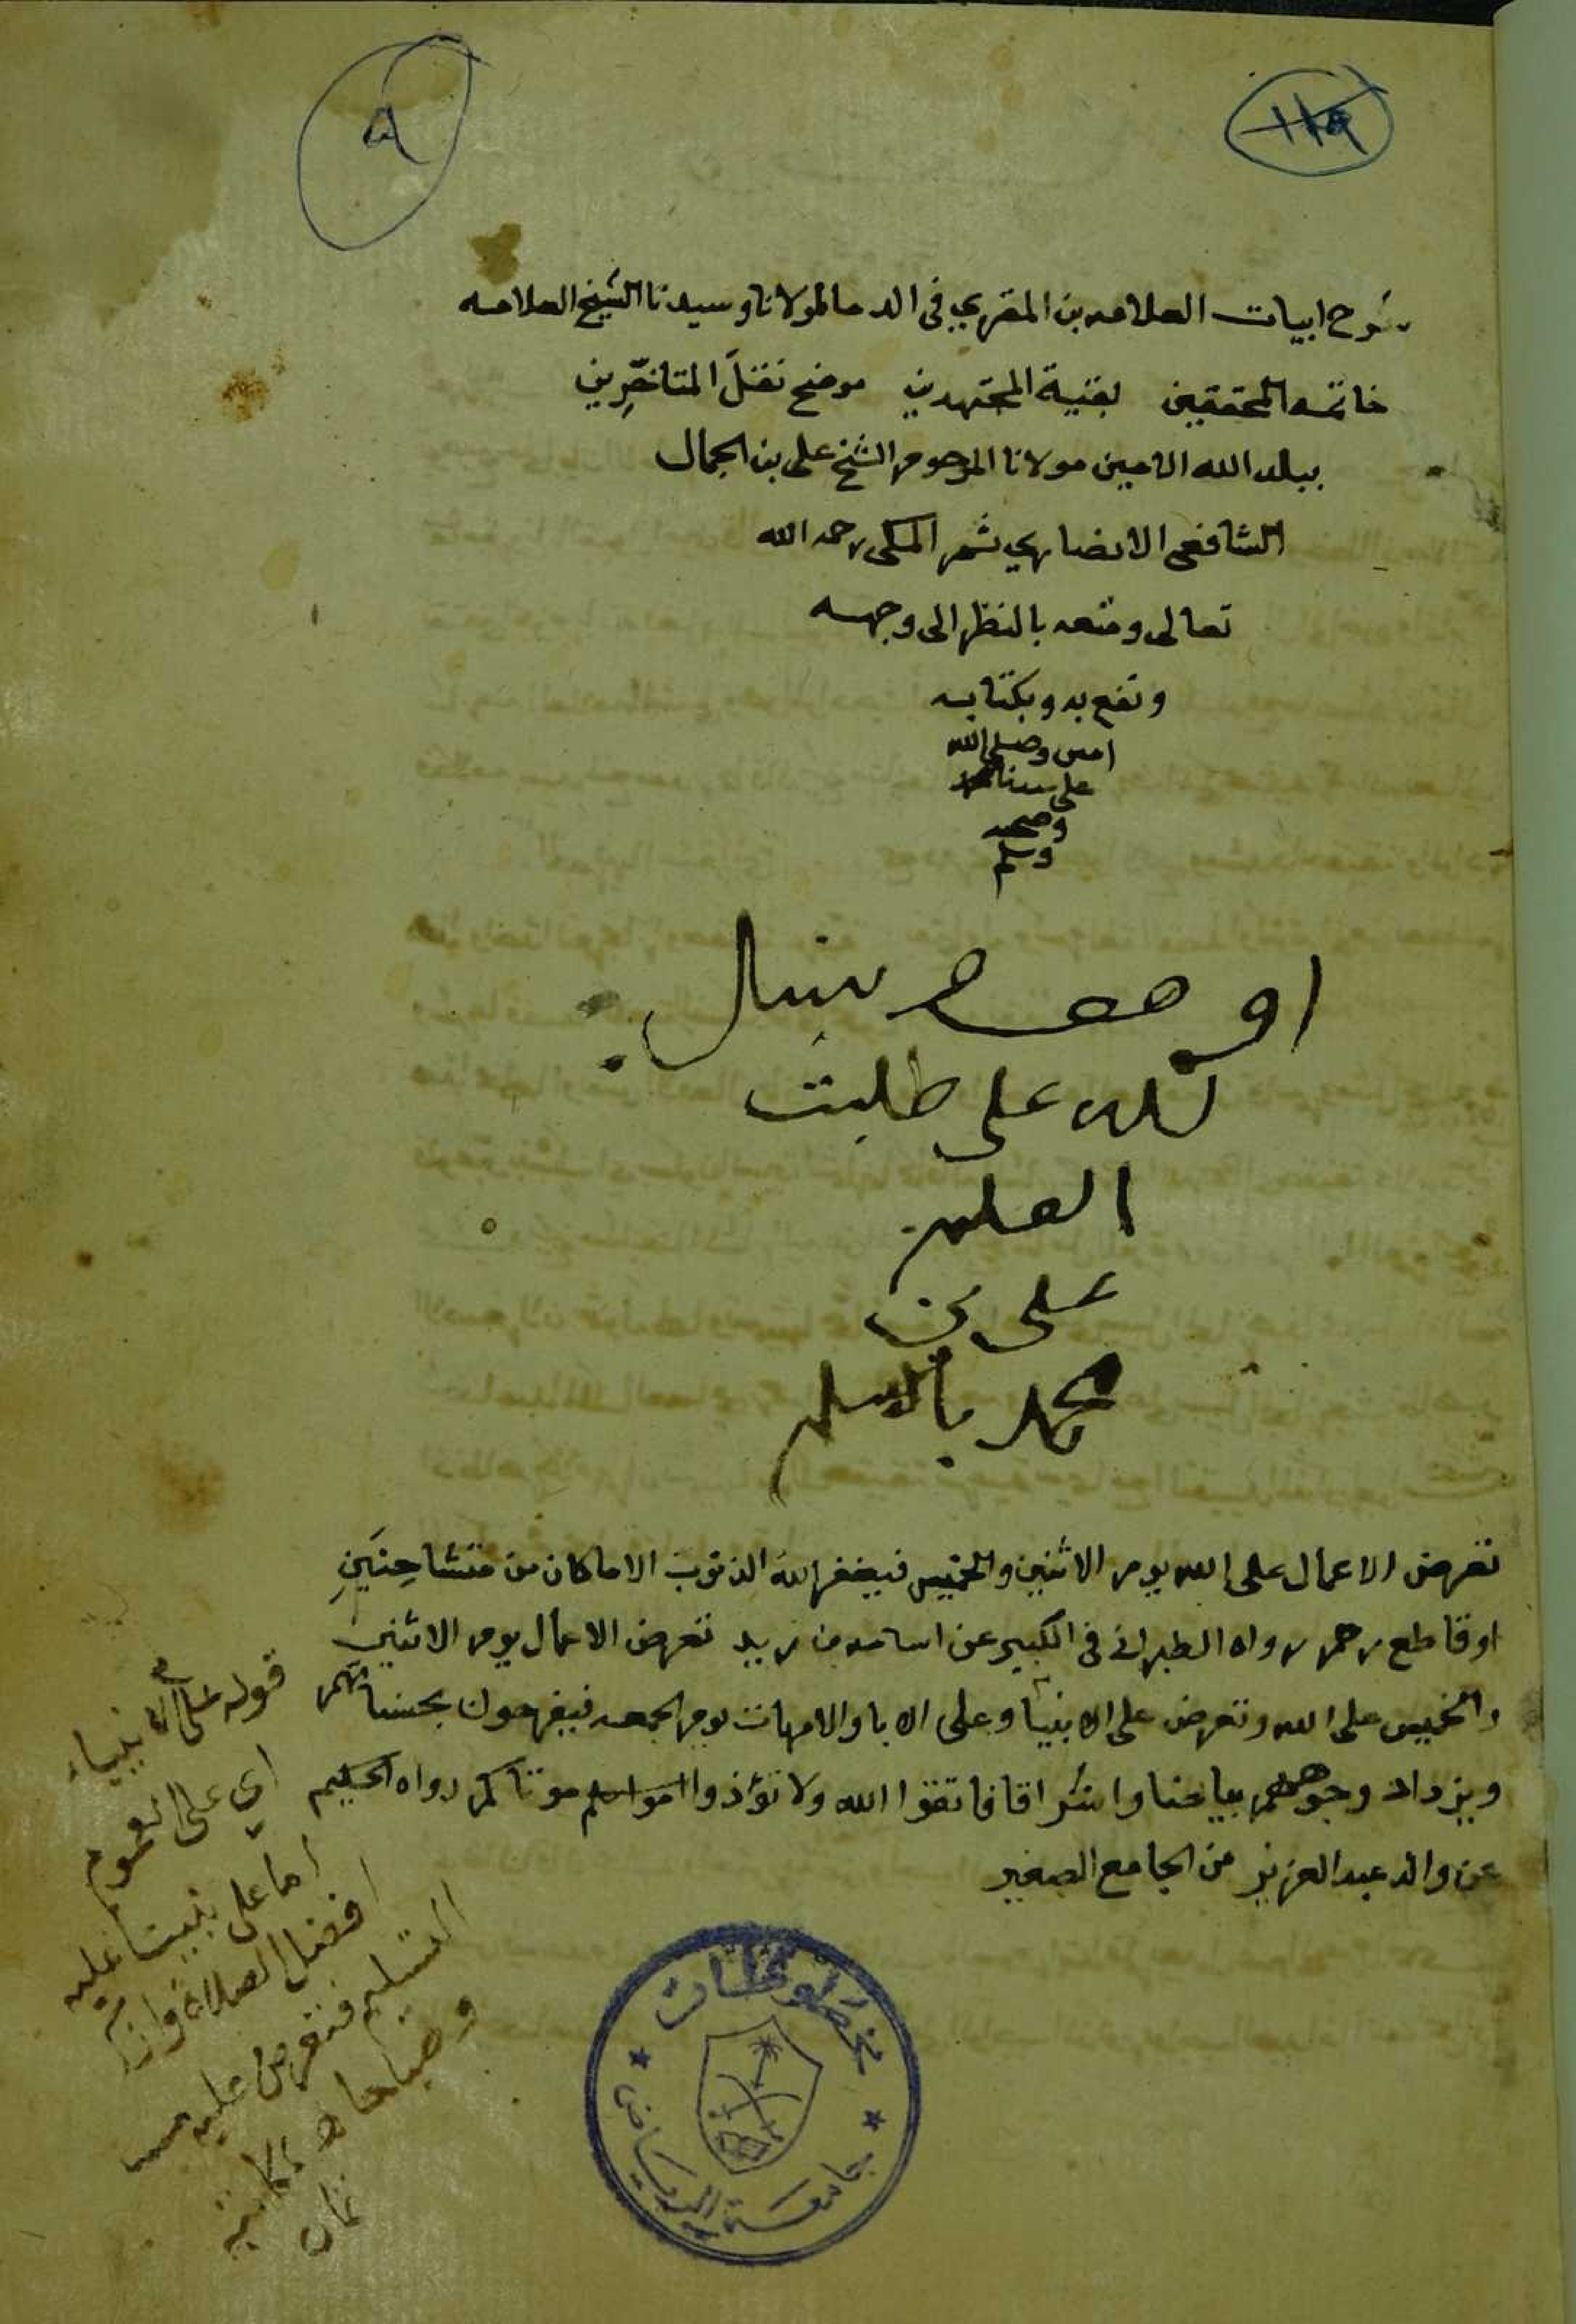 ٩
١١٩
شرح ابيات العلامه بن المقري في الدما لمولانا وسيدنا الشيخ العلامه
خاتمه المحققين بقية المجتهدين موضح نقل المتاخرين
ببلد الله الامين مولانا المرحوم الشيخ علي بن الجمال
الشافعي الانصاري ثم المكي رحمه الله
تعالى ومتعه بالنظر الى وجهه
ونفع به وبكتابه
امين وصلى الله
على سيدنا محمد
وصحبه
وسلم
لله على طلبت
العلم
على بن
محمد
تعرض الاعمال على الله يوم الاثنين والخميس فيغفر الله الذنوب الا ما كان من متشاحِنَينِ
او قاطع رحم رواه الطبراني في الكبير عن اسامه بن زيد تعرض الاعمال يوم الاثنين
والخميس على الله وتعرض على الانبيا وعلى الابا والامهات يوم الجمعه فيفرحون بحسناتهم
ويزداد وجوههم بياضا واشراقا فاتقوا الله ولا تؤذوا موتاكم رواه الحكيم
عن والد عبد العزيز من الجامع الصغير
قوله على الانبياء
اي على العموم
اما على نبينا عليه
افضل الصلاة و
التسليم فتعرض عليه
وصباحا
مخطوطات
جامعة الرياض